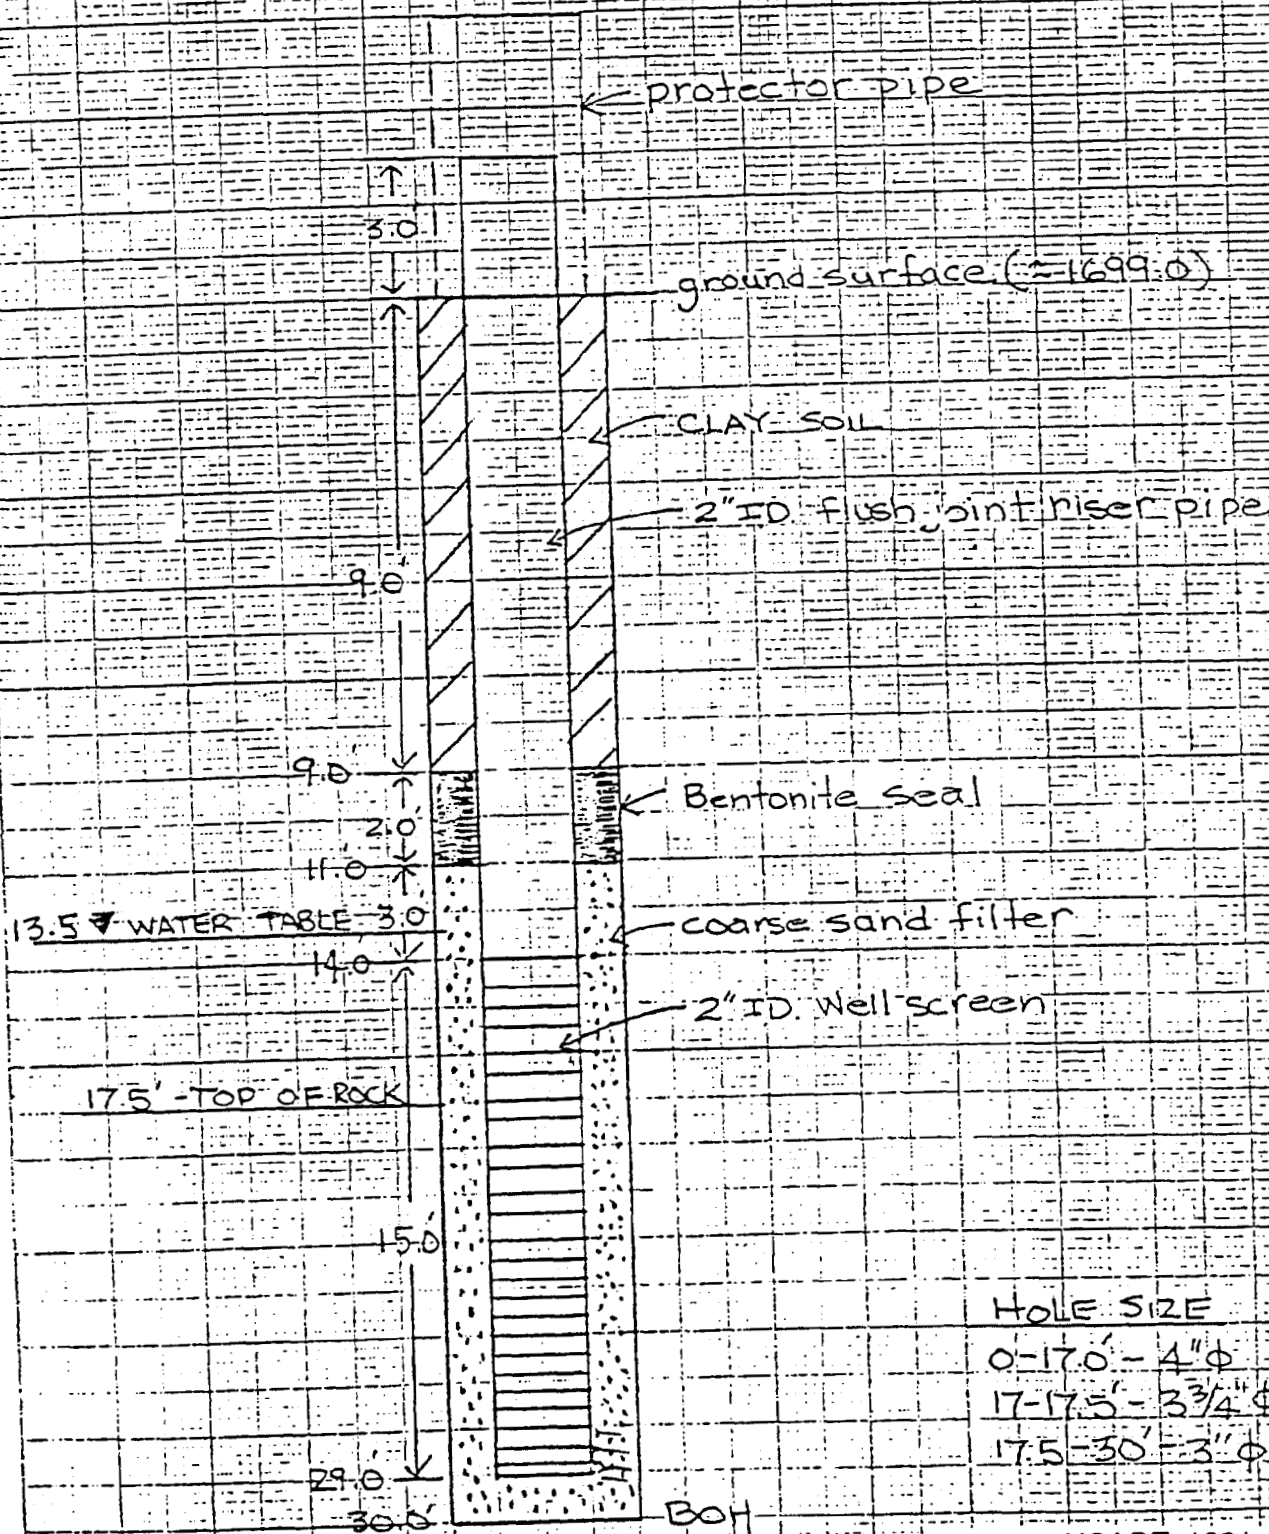 protector pipe
3.0'
ground surface (≈1699.0)
CLAY SOIL
2" ID flush joint riser pipe
9.0'
9.0'
Bentonite seal
2.0'
11.0'
13.5 ▼ WATER TABLE 3.0'
coarse sand filter
14.0'
2" ID. Well screen
17.5' - TOP OF ROCK
15.0'
HOLE SIZE
0-17.0' - 4" ϕ
17-17.5' - 3 3/4" ϕ
17.5-30' - 3" ϕ
29.0'
30.0'
BOH